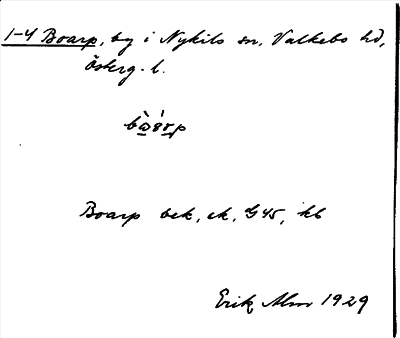 1-4 Boarp, by i Nykils sn, Valkebo hd,
Österg. l.
Boarp bek, ek, G45, kb
Erik Alm 1929